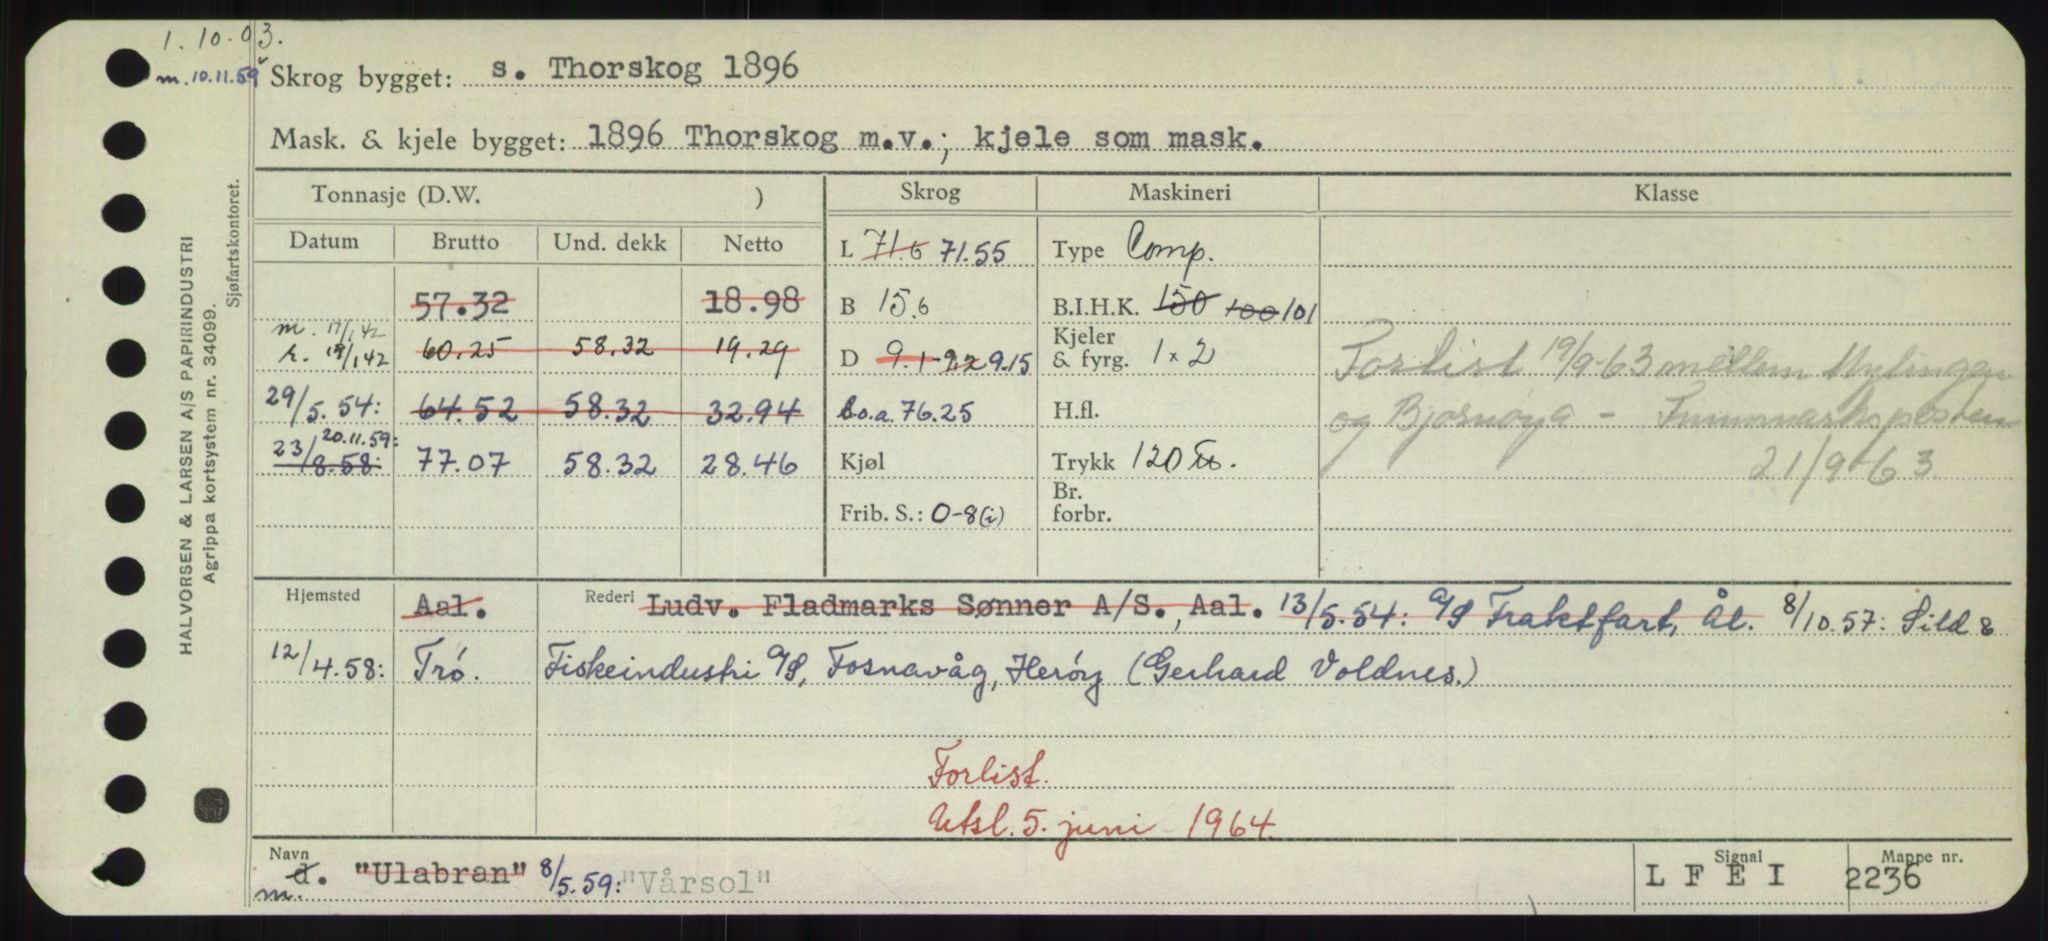 1. 10. 03.
m. 10.11.59
Skrog bygget: s. Thorskog 1896
Mask. & kjele bygget: 1896 Thorskog m.v.; kjele som mask.
Tonnasje (D.W. ) Skrog Maskineri Klasse
Datum Brutto Und. dekk Netto
L 71.6 71.55 Type Comp.
57.32 18.98
B 15.6 B.I.H.K. 150 100 101
m. 17/1.42
k. 19/1.42 60.25 58.32 19.29
D 9.1 - 9.2 9.15 Kjeler & fyrg. 1 x 2
Forlist 19/9-63 mellem
29/5.54: 64.52 58.32 32.94
Lo.a. 76.25 H.fl.
og Bjørnøya -
23/8-58: 20.11.59: 77.07 58.32 28.46
Kjøl Trykk 120
21/9-63.
Frib. S.: 0-8(i) Br. forbr.
Hjemsted Aal. Rederi Ludv. Fladmarks Sønner A/S., Aal. 13/5.54: A/S Fraktfart, Ål. 8/10.57: Sild &
12/4.58: Trø. Fiskeindustri A/S, Fosnavåg, Herøy (Gerhard Voldnes.)
Forlist.
Utsl. 5. juni 1964.
Navn d. "Ulabran" 8/5.59: "Vårsol"
m.
Signal L F E I
Mappe nr. 2236
HALVORSEN & LARSEN A/S PAPIRINDUSTRI
Agrippa kortsystem nr. 34099.
Sjøfartskontoret.